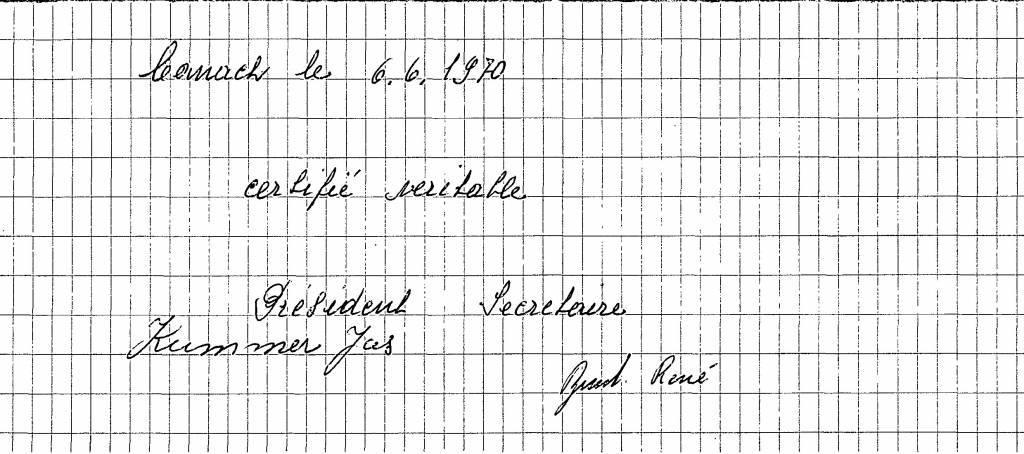 le 6.6.1970
certifié veritable
Président Secretaire
Kummer Jos
René